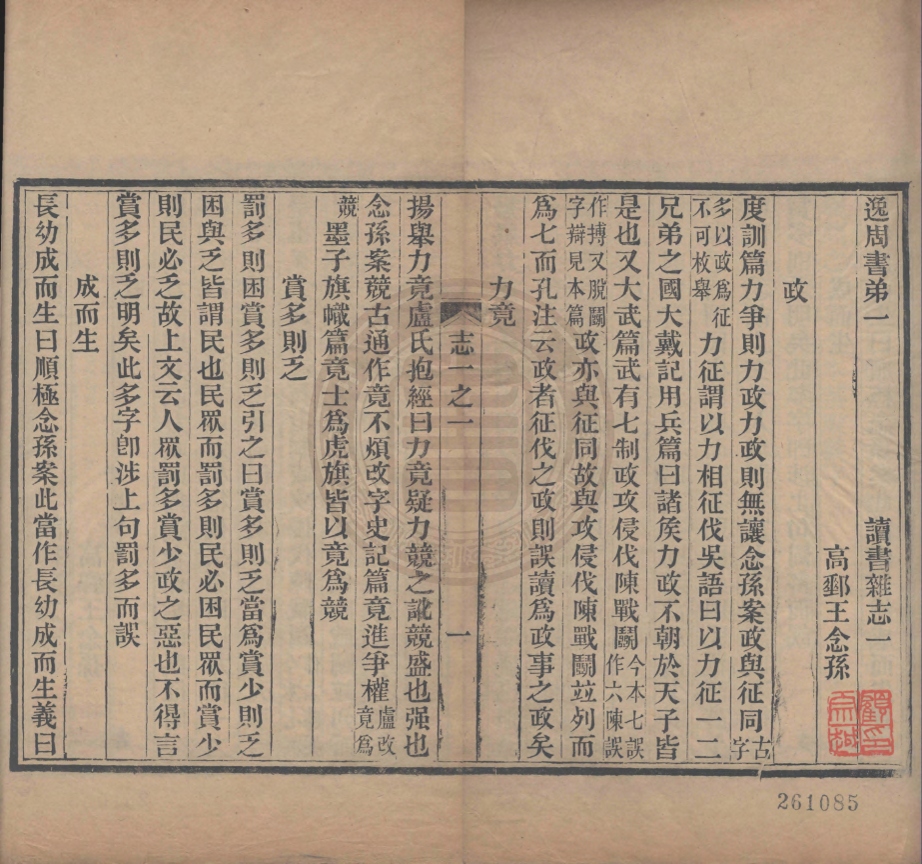 逸周書弟一　讀書雜志一
高郵王念孫
政
度訓篇力爭則力政力政則無讓念孫案政與征同古字
多以政為征不可枚舉力征謂以力相征伐吳語曰以力征一二
兄弟之國大戴記用兵篇曰諸矦力政不朝於天子皆
是也又大武篇武有七制政攻侵伐陳戰鬭今本七誤作六陳誤
作搏又脫鬭字辯見本篇政亦與征同故與攻侵伐陳戰鬭竝列而
為七而孔注云政者征伐之政則誤讀為政事之政矣
力竟
志一之一　一
揚舉力竟盧氏抱經曰力竟疑力競之訛競盛也强也
念孫案競古通作竟不煩改字史記篇竟進爭權盧改竟為
競墨子旗幟篇竟士為虎旗皆以竟為競
賞多則乏
罰多則困賞多則乏引之曰賞多則乏當為賞少則乏
困與乏皆謂民也民眾而罰多則民必困民眾而賞少
則民必乏故上文云人眾罰多賞少政之惡也不得言
賞多則乏明矣此多字卽涉上句罰多而誤
成而生
長幼成而生曰順極念孫案此當作長幼成而生義曰
261085